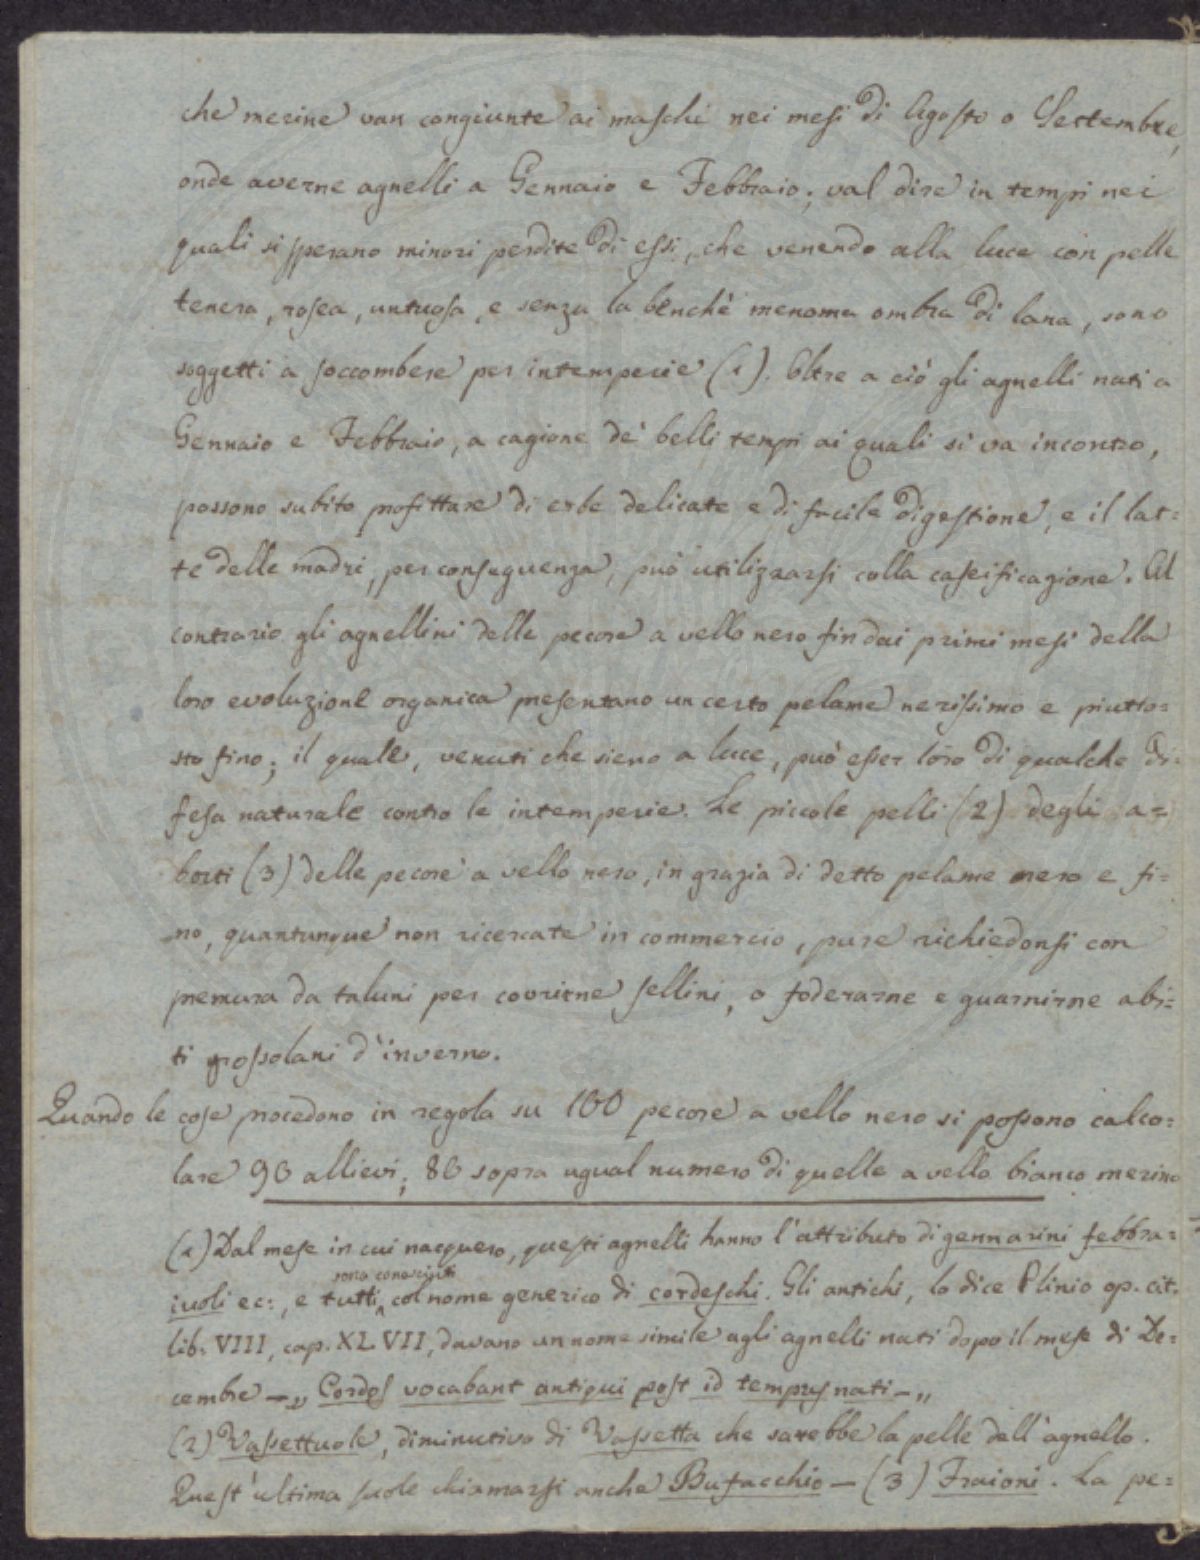 che merine van congiunte ai maschi nei mesi di Agosto o Settembre,
onde averne agnelli a Gennaio e Febbraio; val dire in tempi nei
quali si sperano minori perdite di essi, che venendo alla luce con pelle
tenera, rosea, untuosa, e senza la benchè menoma ombra di lana, sono
soggetti a soccombere per intemperie (1). Oltre a ciò gli agnelli nati a
Gennaio e Febbraio, a cagione de' belli tempi ai quali si va incontro,
possono subito profittare di erbe delicate e di facile digestione, e il lat=
te delle madri, per conseguenza, può utilizzarsi colla caseificazione. Al
contrario gli agnellini delle pecore a vello nero fin dai primi mesi della
loro evoluzione organica presentano un certo pelame nerissimo e piutto=
sto fino; il quale, venuti che sieno a luce, può esser loro di qualche di=
fesa naturale contro le intemperie. Le piccole pelli (2) degli a=
borti (3) delle pecore a vello nero, in grazia di detto pelame nero e fi=
no, quantunque non ricercate in commercio, pure richiedonsi con
premura da taluni per covrirne sellini, o foderarne e guarnirne abi=
ti grossolani d'inverno.
Quando le cose procedono in regola su 100 pecore a vello nero si possono calco=
lare 90 allievi; 80 sopra ugual numero di quelle a vello bianco merino
(1) Dal mese in cui nacquero, questi agnelli hanno l'attributo di gennarini febbra=
iuoli ec:, e tutti sono conosciuti col nome generico di cordeschi. Gli antichi, lo dice Plinio op. cit.
lib: VIII, cap. XLVII, davano un nome simile agli agnelli nati dopo il mese di De=
cembre —„ Cordos vocabant antiqui post id tempus nati —„
(2) Vassettuole, diminutivo di Vassetta che sarebbe la pelle dell'agnello.
Quest'ultima suole chiamarsi anche Bufacchio — (3) Fraioni. La pe=